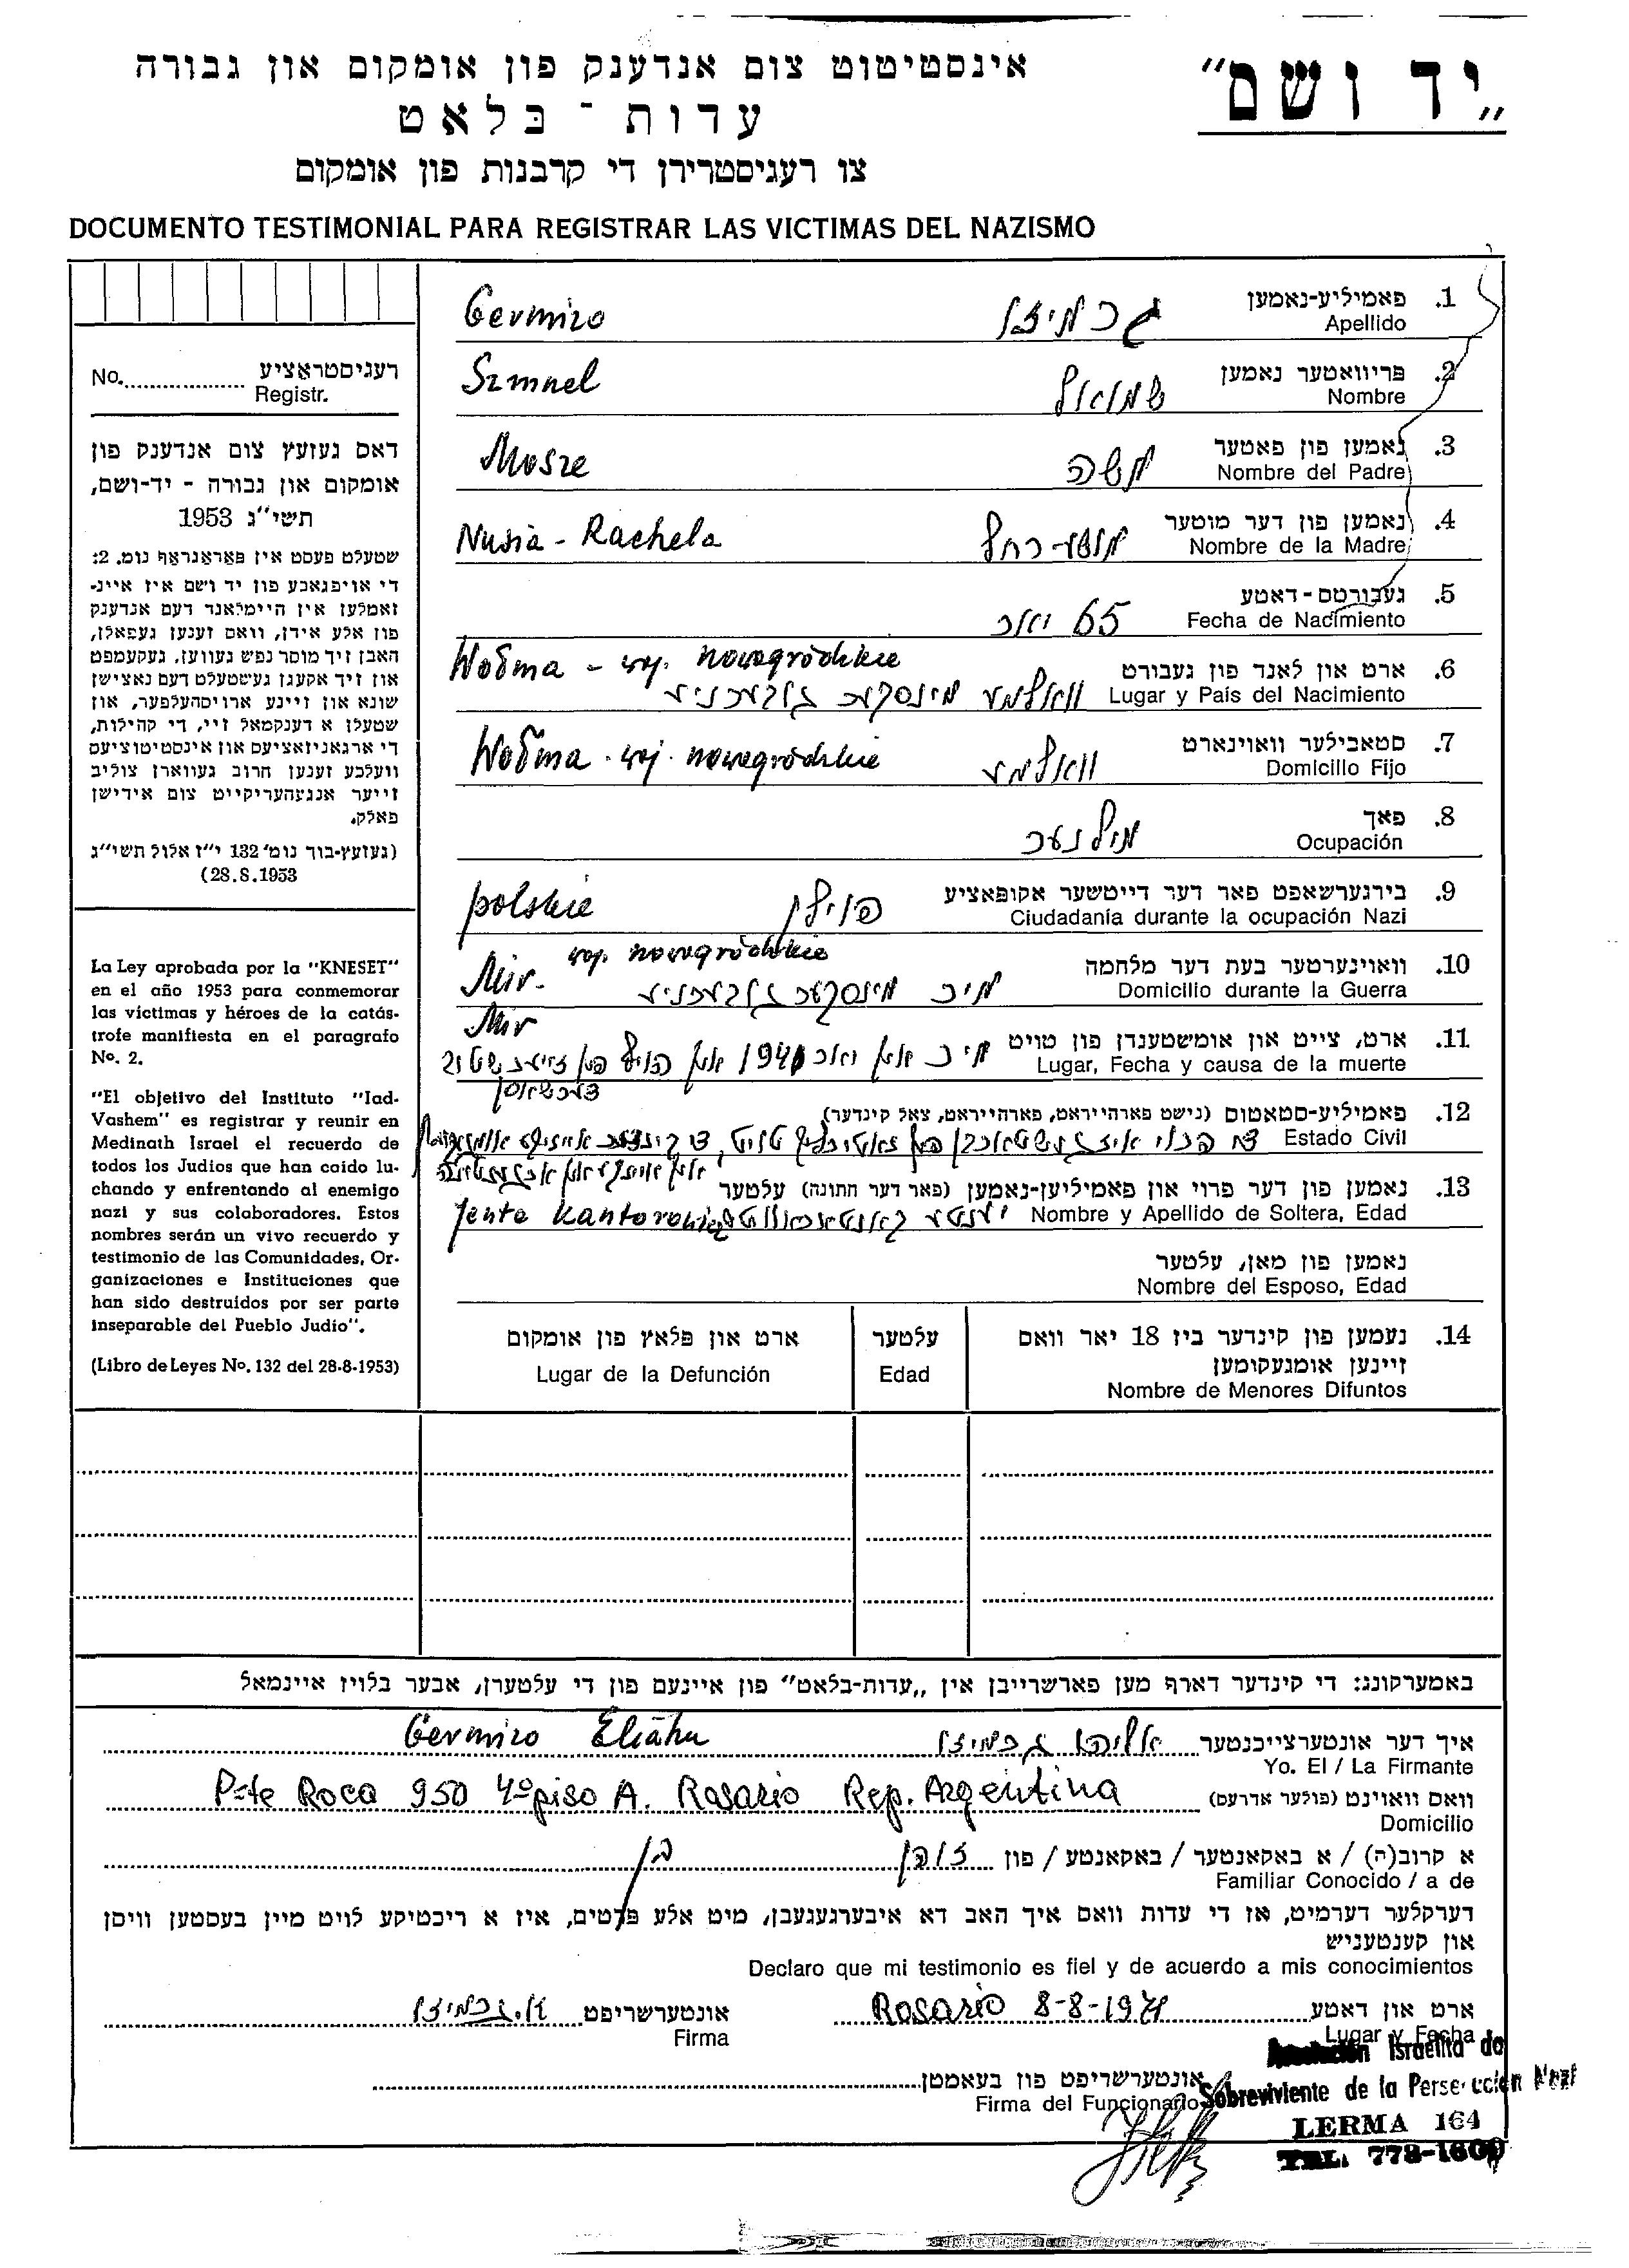 „יד ושם“
אינסטיטוט צום אנדענק פון אומקום און גבורה
עדות־בלאט
צו רעגיסטרירן די קרבנות פון אומקום
DOCUMENTO TESTIMONIAL PARA REGISTRAR LAS VICTIMAS DEL NAZISMO
רעגיסטראציע
No. Registr.
דאס געזעץ צום אנדענק פון
אומקום און גבורה - יד-ושם,
תשי"ג 1953
שטעלט פעסט אין פאראגראף נומ. 2:
די אויפגאבע פון יד ושם איז איינ-
זאמלען אין היימלאנד דעם אנדענק
פון אלע אידן, וואס זענען געפאלן,
האבן זיך מוסר נפש געווען, געקעמפט
און זיך אקעגן געשטעלט דעם נאצישן
שונא און זיינע ארויסהעלפער, און
שטעלן א דענקמאל זיי, די קהילות,
די ארגאניזאציעס און אינסטיטוציעס
וועלכע זענען חרוב געווארן צוליב
זייער אנגעהעריקייט צום אידישן
פאלק.
(געזעץ-בוך נומ' 132 י"ז אלול תשי"ג
28.8.1953)
La Ley aprobada por la "KNESET"
en el año 1953 para conmemorar
las víctimas y héroes de la catás-
trofe manifiesta en el paragrafo
Nº. 2.
"El objetivo del Instituto "Iad-
Vashem" es registrar y reunir en
Medinath Israel el recuerdo de
todos los Judios que han caído lu-
chando y enfrentando al enemigo
nazi y sus colaboradores. Estos
nombres serán un vivo recuerdo y
testimonio de las Comunidades, Or-
ganizaciones e Instituciones que
han sido destruídos por ser parte
inseparable del Pueblo Judío".
(Libro de Leyes Nº. 132 del 28-8-1953)
1. פאמיליע-נאמען גרמיזן Germizo
Apellido
2. פריוואטער נאמען שמואל Szmuel
Nombre
3. נאמען פון פאטער משה Mosze
Nombre del Padre
4. נאמען פון דער מוטער רחל Nusia - Rachela
Nombre de la Madre
5. געבורטס-דאטע 65 יאר
Fecha de Nacimiento
6. ארט און לאנד פון געבורט Wołma - woj. nowogródzkie
Lugar y País del Nacimiento וואלמע מינסקער גובערניע
7. סטאבילער וואוינארט וואלמע Wołma - woj. nowogródzkie
Domicilio Fijo
8. פאך מילנער
Ocupación
9. בירגערשאפט פאר דער דייטשער אקופאציע פוילן polskie
Ciudadanía durante la ocupación Nazi
10. וואוינערטער בעת דער מלחמה Mir. woj. nowogródzkie
Domicilio durante la Guerra מיר מינסקער גובערניע
11. ארט, צייט און אומשטענדן פון טויט Mir
Lugar, Fecha y causa de la muerte מיר אין יאר 1941 אין הויף פון
דערשאסן
12. פאמיליע-סטאטוס (נישט פארהייראט, פארהייראט, צאל קינדער)
Estado Civil
13. נאמען פון דער פרוי און פאמיליען-נאמען (פאר דער חתונה) עלטער
Nombre y Apellido de Soltera, Edad יענטע Jente
נאמען פון מאן, עלטער
Nombre del Esposo, Edad
14. נעמען פון קינדער ביז 18 יאר וואס עלטער ארט און פלאץ פון אומקום
זיינען אומגעקומען
Nombre de Menores Difuntos Edad Lugar de la Defunción
באמערקונג: די קינדער דארף מען פארשרייבן אין „עדות-בלאט“ פון איינעם פון די עלטערן, אבער בלויז איינמאל
איך דער אונטערצייכנטער אליהו גרמיזן Germizo Eliahu
Yo. El / La Firmante
וואס וואוינט (פולער אדרעס) Pte Roca 950 4º piso A. Rosario Rep. Argentina
Domicilio
א קרוב(ה) / א באקאנטער / באקאנטע / פון זוהן בן
Familiar Conocido / a de
דערקלער דערמיט, אז די עדות וואס איך האב דא איבערגעגעבן, מיט אלע פרטים, איז א ריכטיקע לויט מיין בעסטען וויסן
און קענטעניש
Declaro que mi testimonio es fiel y de acuerdo a mis conocimientos
ארט און דאטע Rosario 8-8-1971 אונטערשריפט א. גרמיזן
Lugar y Fecha Firma
אונטערשריפט פון בעאמטן
Firma del Funcionario
Asociación Israelita de
Sobreviviente de la Persecución Nazi
LERMA 164
TEL. 773-1600